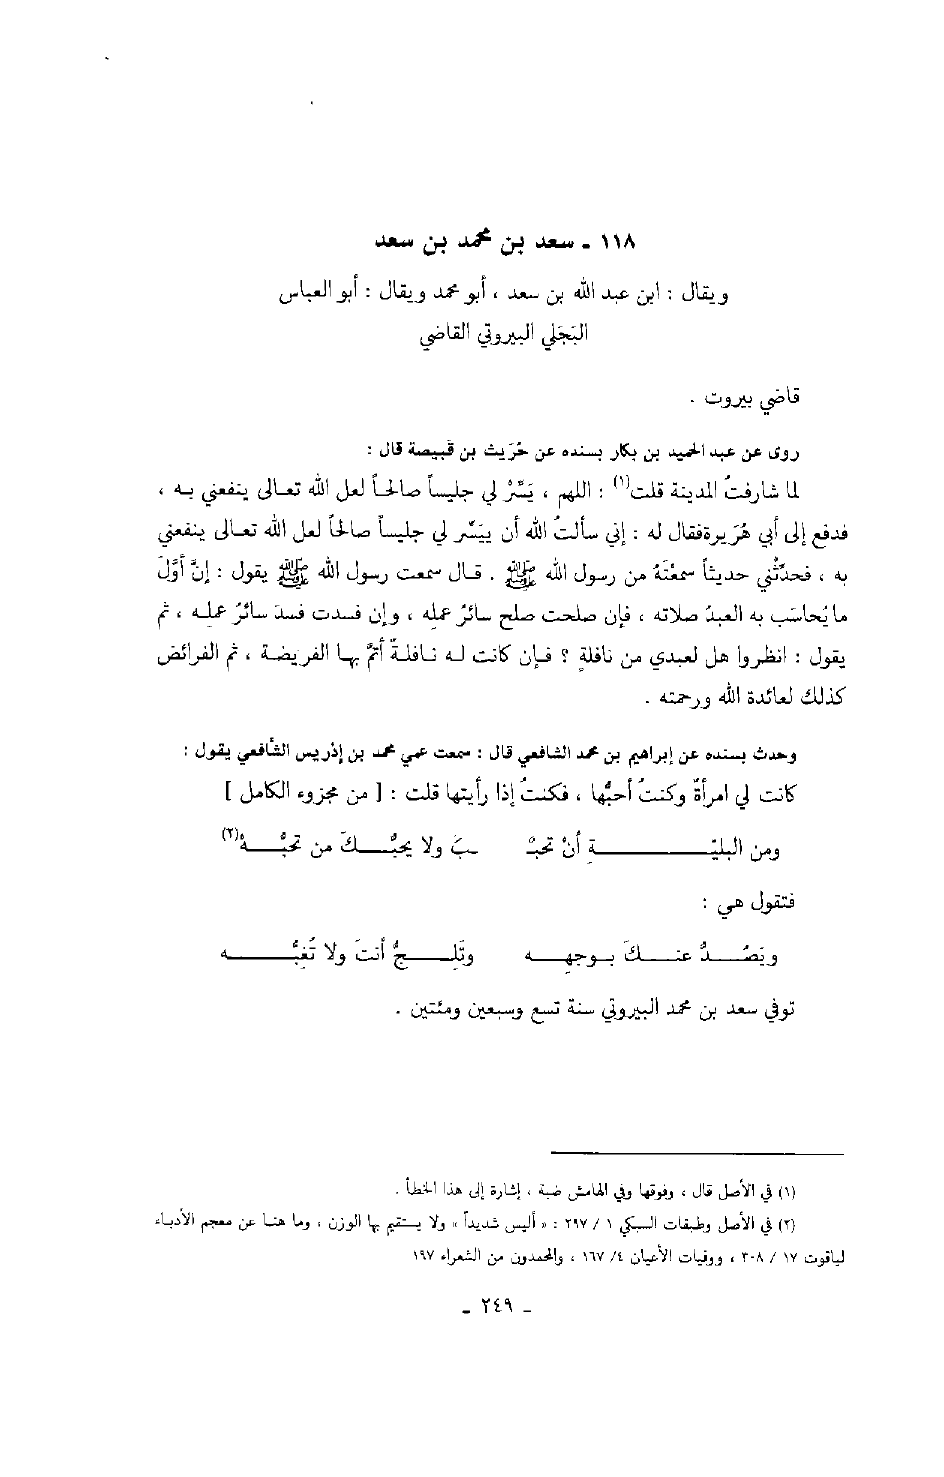 ١١٨ ـ سعد بن محمد بن سعد
ويقال : ابن عبد الله بن سعد ، أبو محمد ويقال : أبو العباس
البَجَلي البيروتي القاضي
قاضي بيروت .
روى عن عبد الحميد بن بكار بسنده عن حُرَيث بن قبيصة قال :
لما شارفتُ المدينة قلت(١) : اللهم ، يَسِّرْ لي جليساً صالحاً لعل الله تعالى ينفعني به ،
فدفع إلى أبي هُرَيرة فقال له : إني سألتُ الله أن ييَسِّر لي جليساً صالحاً لعل الله تعالى ينفعني
به ، فحدِّثْني حديثاً سمعْتَهُ من رسول الله ﷺ . قال سمعت رسول الله ﷺ يقول : إنَّ أوَّلَ
ما يُحاسَب به العبدُ صلاته ، فإن صلحت صلح سائرُ عمله ، وإن فسدت فسدَ سائرُ عمله ، ثم
يقول : انظروا هل لعبدي من نافلةٍ ؟ فإن كانت له نافلةٌ أتمَّ بها الفريضة ، ثم الفرائض
كذلك لعائدة الله ورحمته .
وحدث بسنده عن إبراهيم بن محمد الشافعي قال : سمعت عمي محمد بن إدْريس الشَّافعي يقول :
كانت لي امرأةٌ وكنتُ أحبُّها ، فكنتُ إذا رأيتها قلت : [ من مجزوء الكامل ]
ومن البليّـــةِ أنْ تحبْـ ـبَ ولا يحبُّـــكَ من تحبُّـــهْ(٢)
فتقول هي :
ويَصُـــدُّ عنـــكَ بوجهِـــه وتُلِـــحُّ أنتَ ولا تُغِبُّـــه
توفي سعد بن محمد البيروتي سنة تسع وسبعين ومئتين .
(١) في الأصل قال ، وفوقها وفي الهامش ضبة ، إشارة إلى هذا الخطأ .
(٢) في الأصل وطبقات السبكي ١ / ٢٩٧ : « أليس شديداً » ولا يستقيم بها الوزن ، وما هنا عن معجم الأدباء
لياقوت ١٧ / ٣٠٨ ، ووفيات الأعيان ٤/ ١٦٧ ، والمحمدون من الشعراء ١٩٧
ـ ٢٤٩ ـ